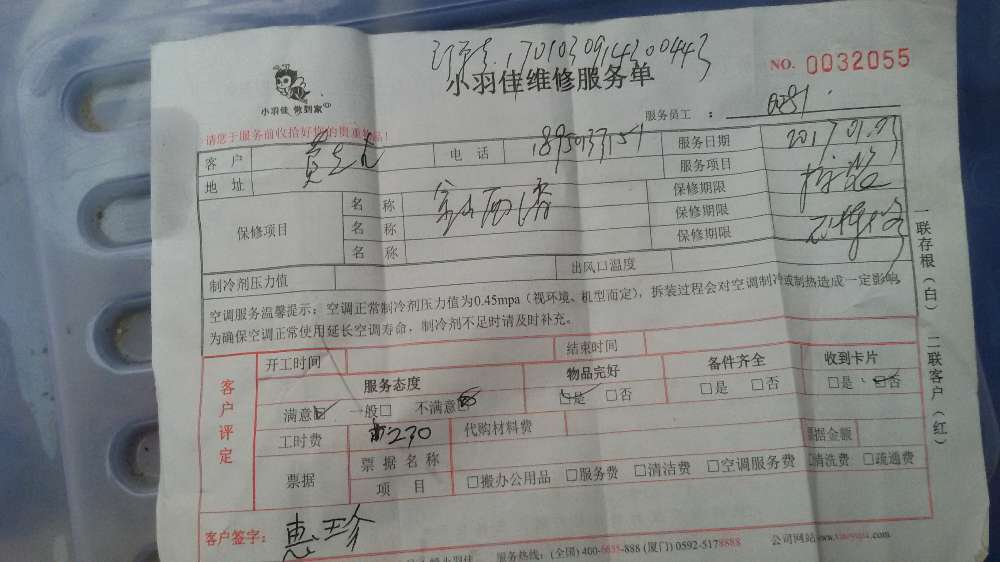 1701030914300443
小羽佳维修服务单
NO. 0032055
小羽佳 做到家
服务员工 : 0081
请您于服务前收拾好您的贵重物品!
客 户 电 话 服务日期 2017.01.03
地 址 服务项目
保修项目 名 称 保修期限
名 称 保修期限
名 称 保修期限
制冷剂压力值 出风口温度
空调服务温馨提示:空调正常制冷剂压力值为0.45mpa(视环境、机型而定),拆装过程会对空调制冷或制热造成一定影响
为确保空调正常使用延长空调寿命,制冷剂不足时请及时补充。
一联存根(白) 二联客户(红)
客户评定
开工时间 结束时间
服务态度 物品完好 备件齐全 收到卡片
满意□ 一般□ 不满意□ □是 □否 □是 □否 □是 □否
工时费 270 代购材料费 票据金额
票据 票据名称
项 目 □搬办公用品 □服务费 □清洁费 □空调服务费 □清洗费 □疏通费
客户签字: 惠珍
服务热线:(全国) 400-6655-888 (厦门) 0592-5178888 公司网站www.xiaoyujia.com